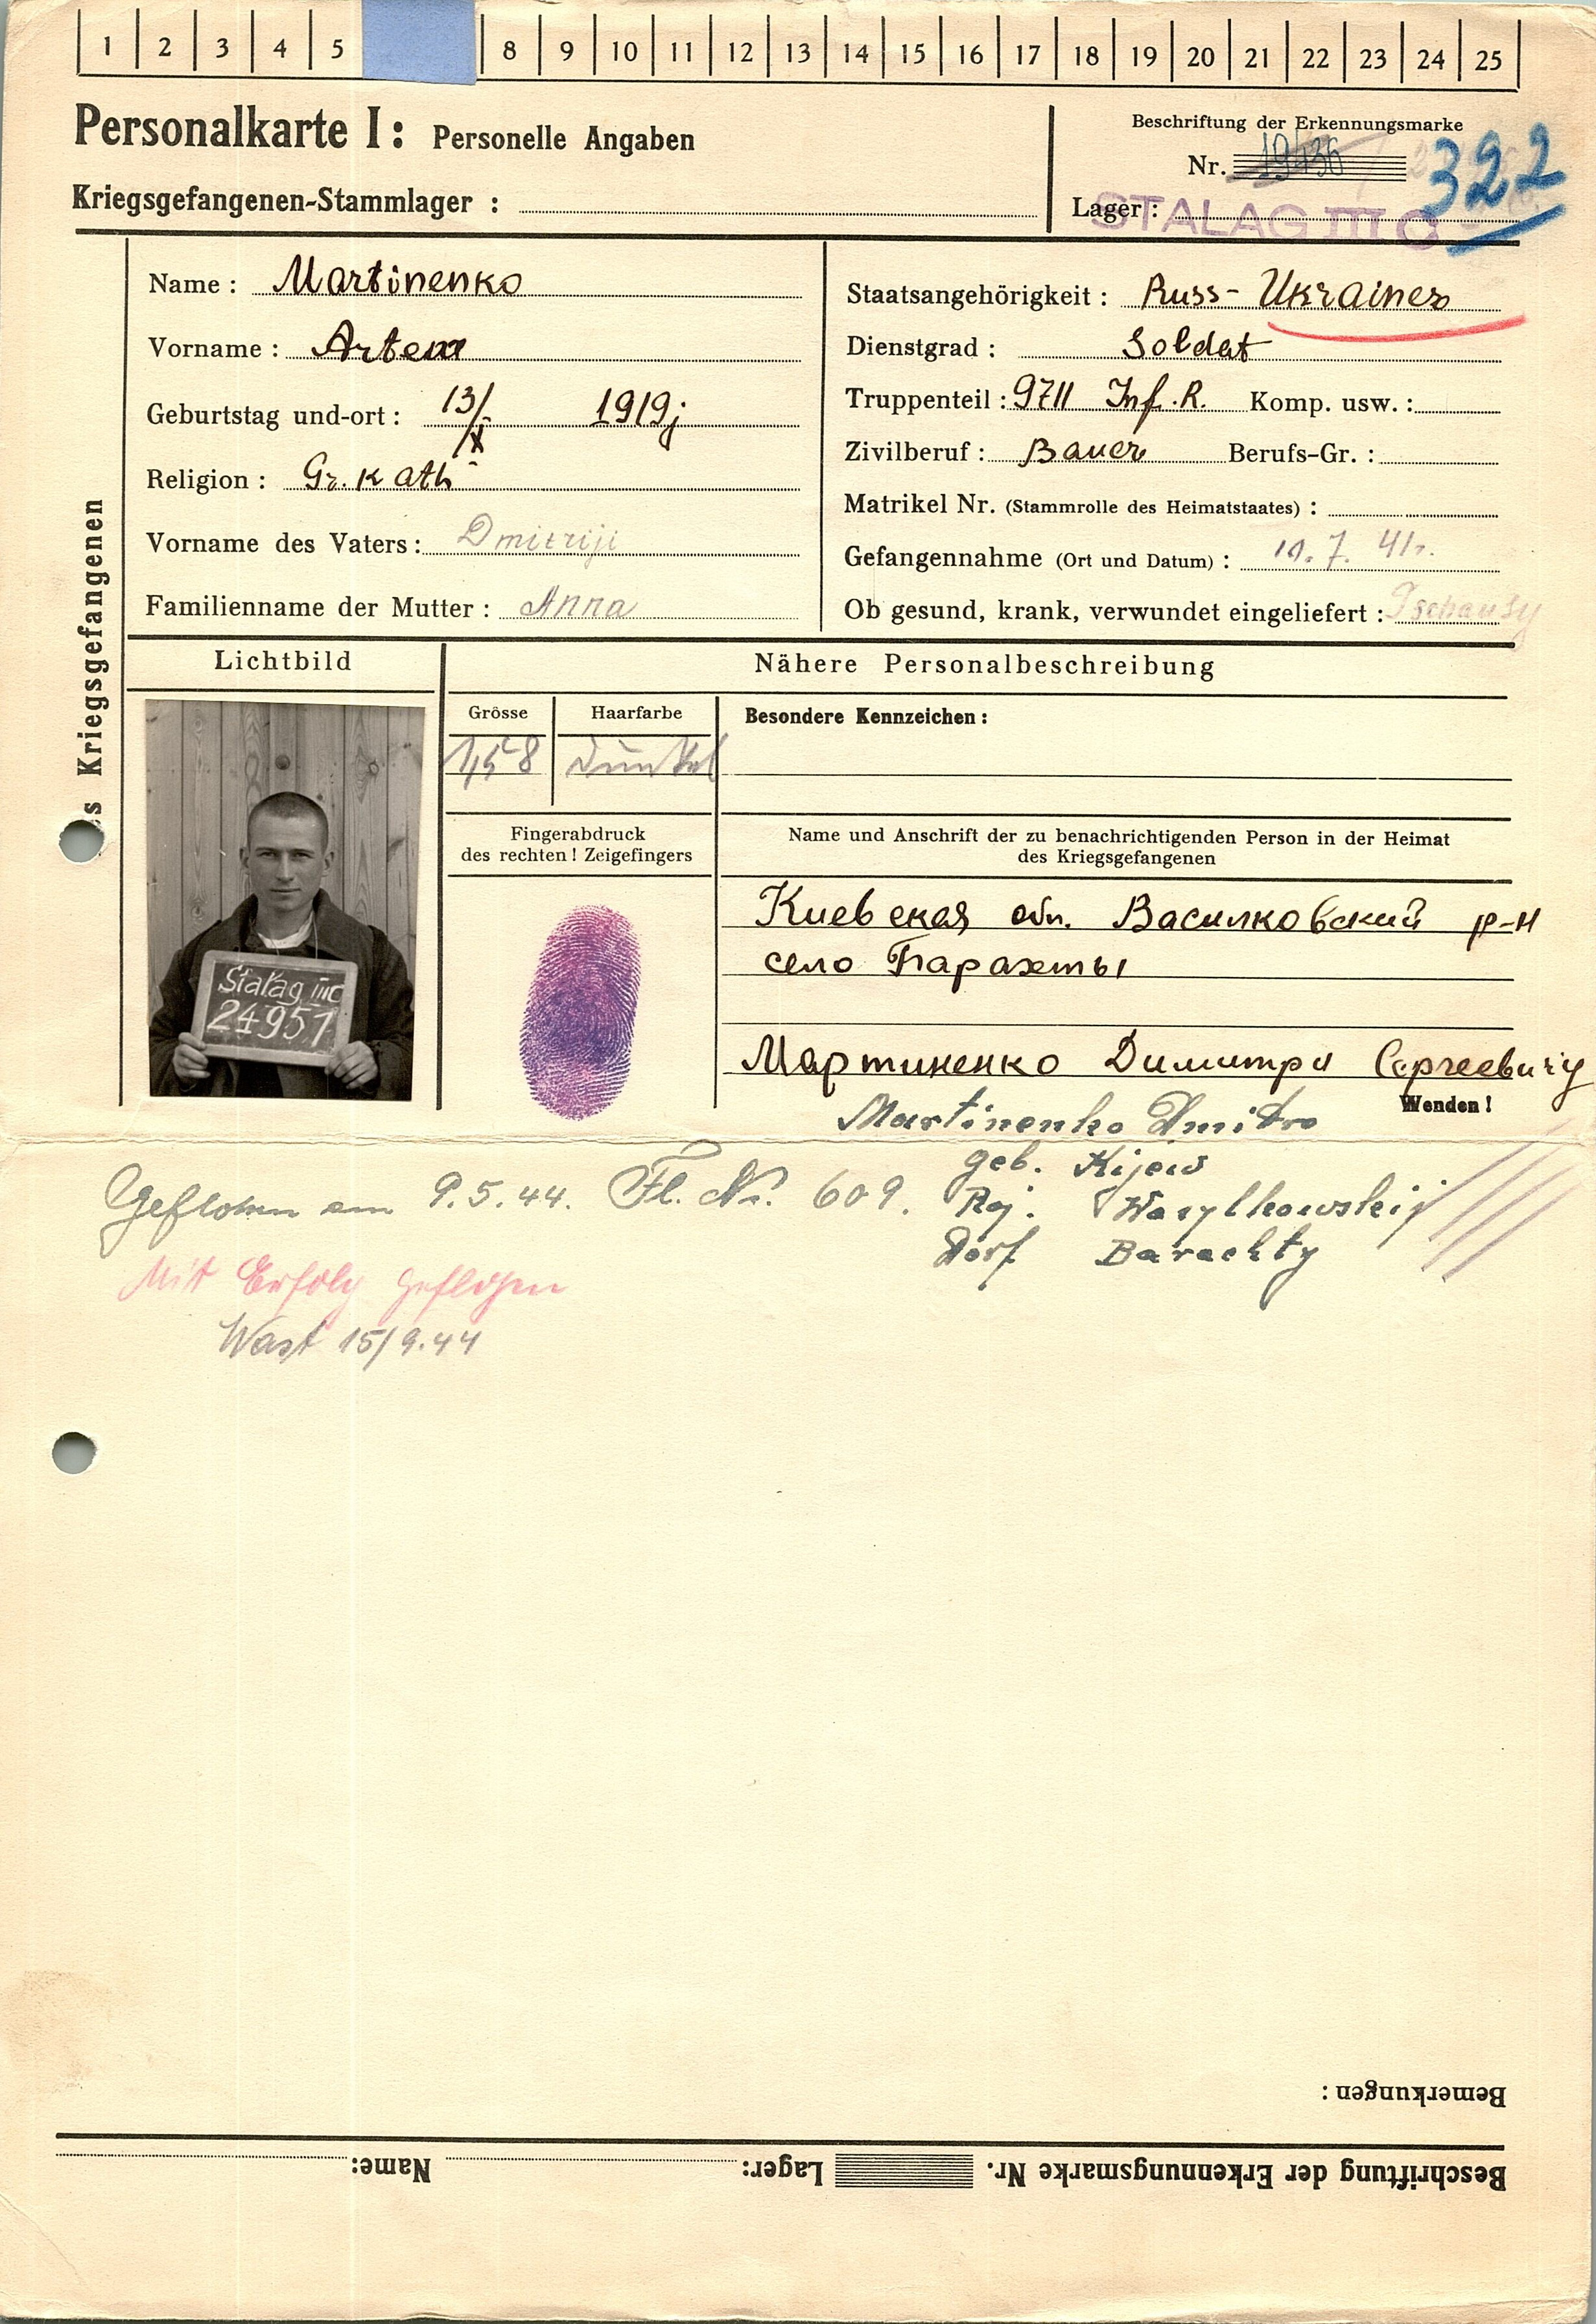 1 2 3 4 5 8 9 10 11 12 13 14 15 16 17 18 19 20 21 22 23 24 25
Personalkarte I: Personelle Angaben
Kriegsgefangenen-Stammlager :
Beschriftung der Erkennungsmarke
Nr. 322
Lager: STALAG III C
des Kriegsgefangenen
Name: Martinenko
Vorname: Artem
Geburtstag und-ort: 13/X 1919j
Religion: Gr. Kath
Vorname des Vaters: Dmitriji
Familienname der Mutter: Anna
Staatsangehörigkeit: Russ- Ukrainer
Dienstgrad: Soldat
Truppenteil: 9711 Inf. R. Komp. usw.:
Zivilberuf: Bauer Berufs-Gr.:
Matrikel Nr. (Stammrolle des Heimatstaates) :
Gefangennahme (Ort und Datum) : 10. 7. 41.
Ob gesund, krank, verwundet eingeliefert : Tschausy
Lichtbild
Stalag IIIC
24951
Nähere Personalbeschreibung
Grösse
1,58
Haarfarbe
dunkel
Besondere Kennzeichen:
Fingerabdruck
des rechten! Zeigefingers
Name und Anschrift der zu benachrichtigenden Person in der Heimat
des Kriegsgefangenen
Киевская обл. Василковский р-н
село Барахты
Мартиненко Димитри Сергеевичу
Wenden!
Martinenko Dmitro
geb. Kijew
Raj. Wasylkowskij
Dorf Barachty
Geflohen am 9.5.44. Fl. Nr. 609.
Mit Erfolg geflohen
Wast 15/9.44
Bemerkungen:
Beschriftung der Erkennungsmarke Nr. Lager: Name: